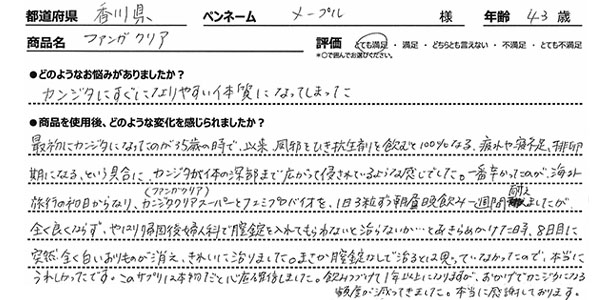 都道府県 香川県 ペンネーム メープル 様 年齢 43 歳
商品名 ファンガクリア 評価 とても満足 ・ 満足 ・ どちらとも言えない ・ 不満足 ・ とても不満足
*○で囲んでお選びください。
●どのようなお悩みがありましたか?
カンジタにすぐになりやすい体質になってしまった
●商品を使用後、どのような変化を感じられましたか?
最初にカンジタになったのが35歳の時で、以来、風邪をひき抗生剤を飲むと100%なる、疲れや寝不足、排卵
期になる、という具合に、カンジタ菌が体の深部まで広がって侵されているような感じでした。一番辛かったのが、海外
(ファンガクリア)
旅行の初日からなり、カンジタクリアスーパーとフェミプロバイオを、1日3粒ずつ朝昼晩飲み一週間耐えましたが、
全く良くならず、やはり帰国後婦人科で膣錠を入れてもらわないと治らないか…とあきらめかけた時、8日目に
突然全く白いおりものが消え、きれいに治りました。まさか膣錠なしで治るとは思っていなかったので、本当に
うれしかったです。このサプリは本物だと心底関係しました。飲みつづけて1年以上になりますが、おかげでカンジタになる
頻度が減ってきました。本当に感謝しております。